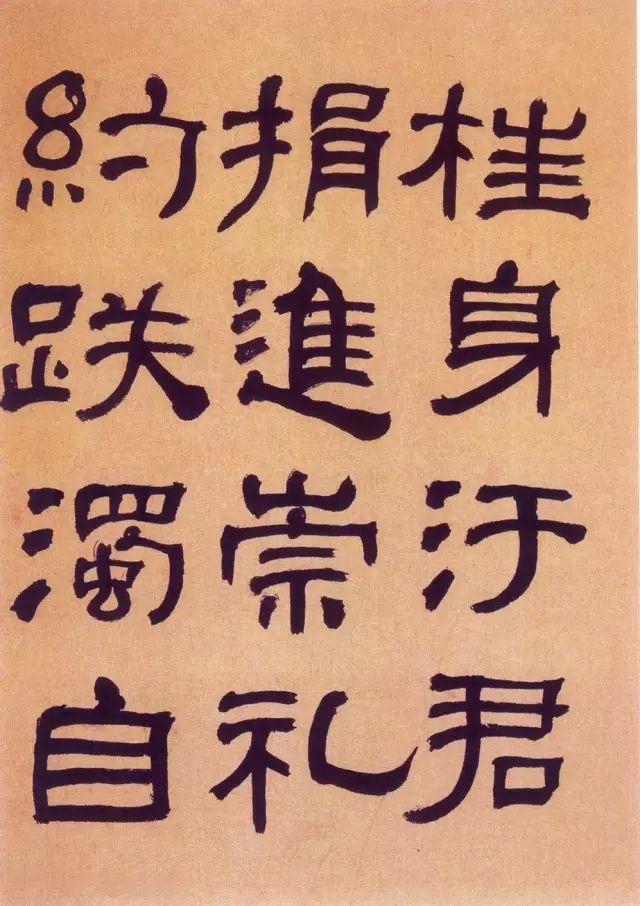 桂身汙君
捐進崇礼
約跌濁自